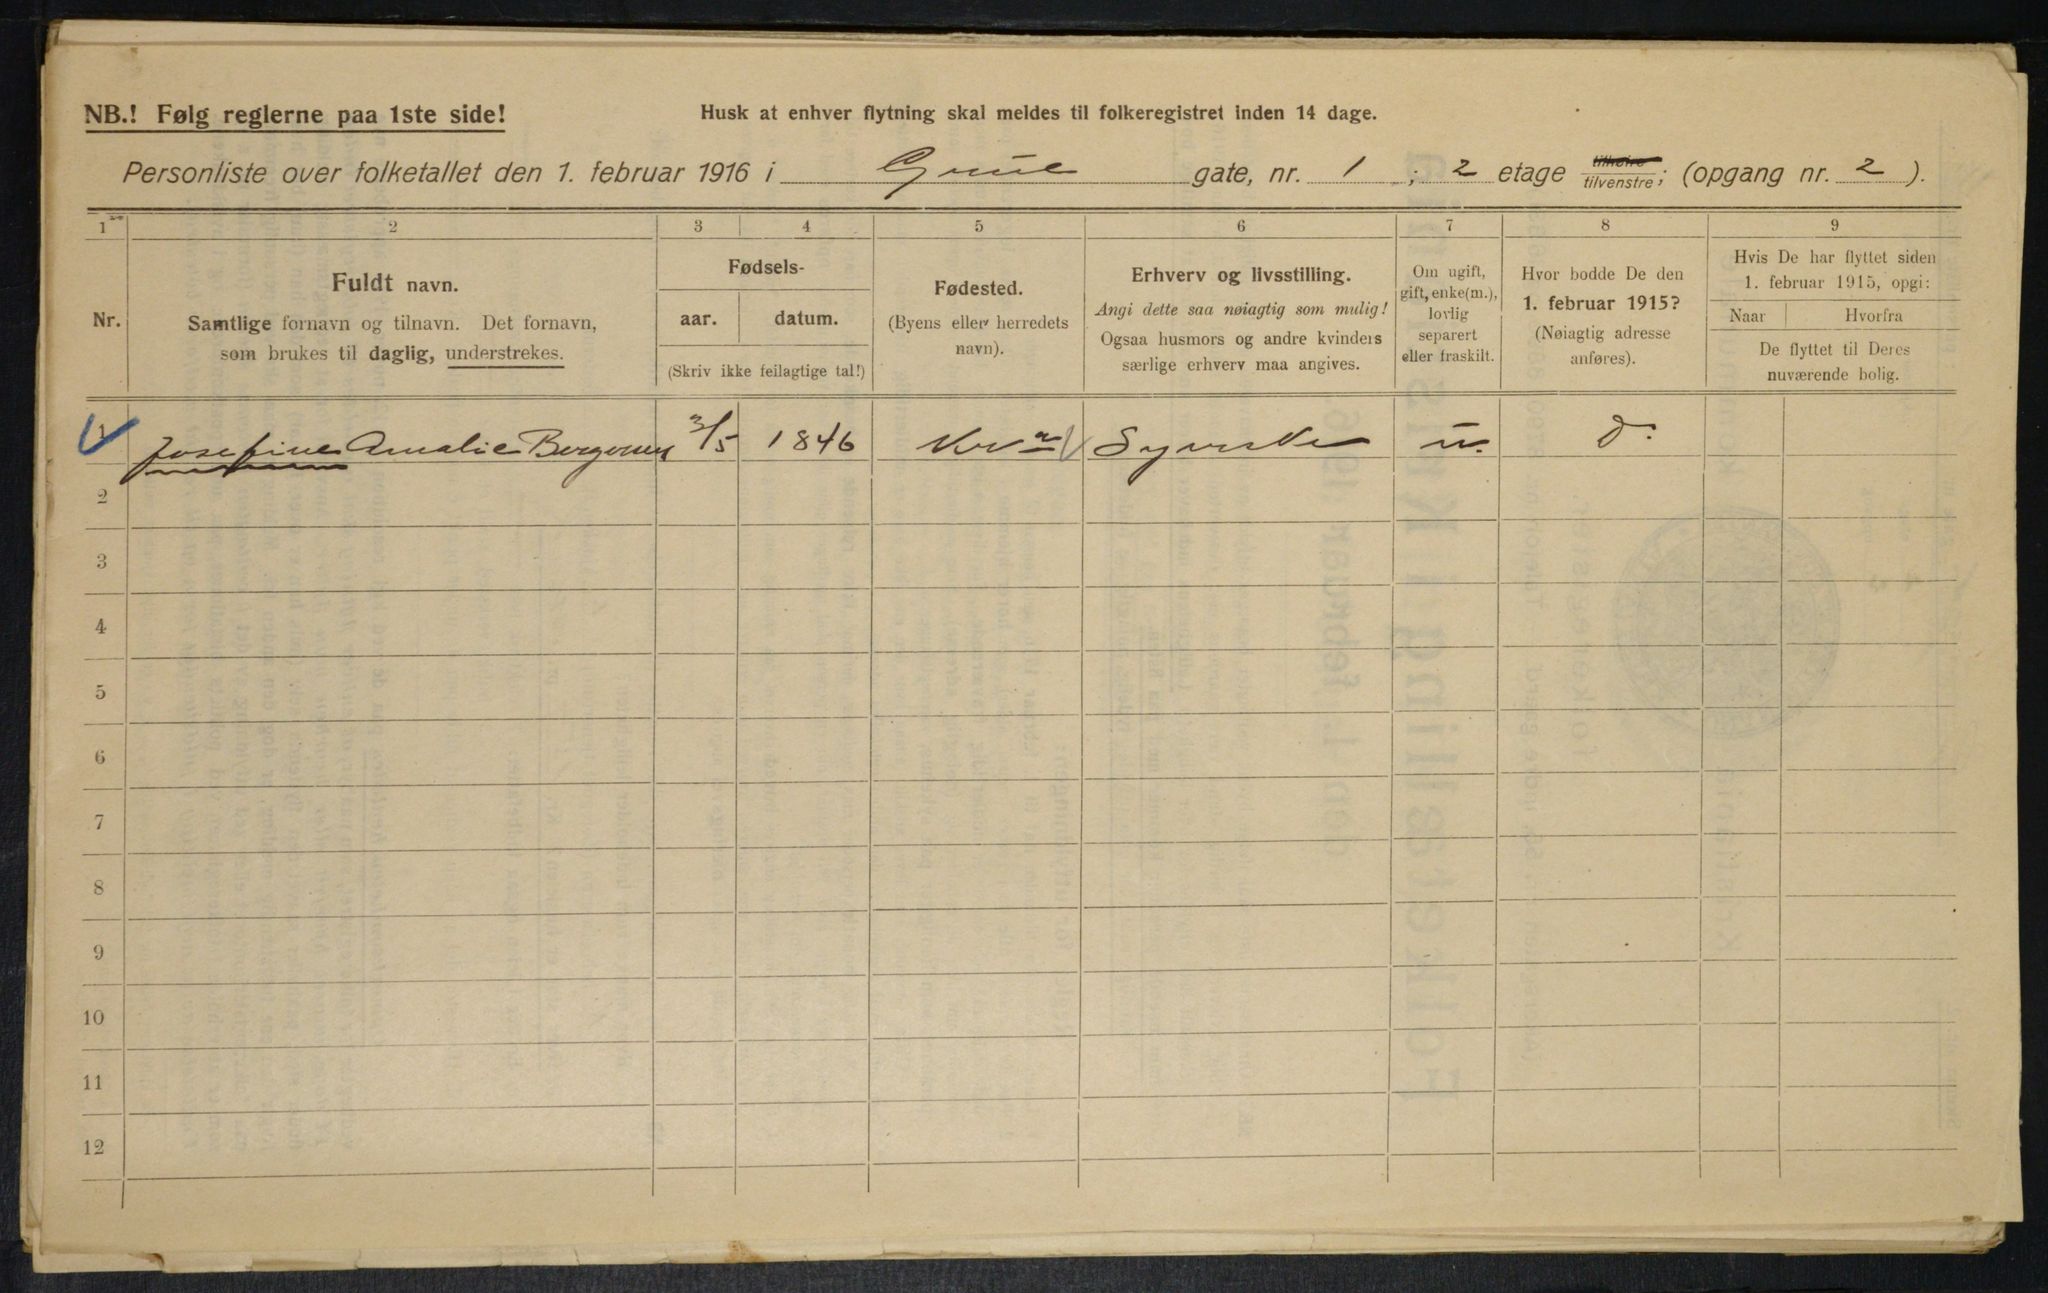 NB.! Følg reglerne paa 1ste side!
Husk at enhver flytning skal meldes til folkeregistret inden 14 dage.
Personliste over folketallet den 1. februar 1916 i Grüne gate, nr. 1 ; 2 etage tilhøire tilvenstre; (opgang nr. 2 ).
1 2 3 4 5 6 7 8 9
Nr.
Fuldt navn.
Samtlige fornavn og tilnavn. Det fornavn,
som brukes til daglig, understrekes.
Fødsels-
aar. datum.
(Skriv ikke feilagtige tal!)
Fødested.
(Byens eller herredets
navn).
Erhverv og livsstilling.
Angi dette saa nøiagtig som mulig!
Ogsaa husmors og andre kvinders
særlige erhverv maa angives.
Om ugift,
gift, enke(m.),
lovlig
separert
eller fraskilt.
Hvor bodde De den
1. februar 1915?
(Nøiagtig adresse
anføres).
Hvis De har flyttet siden
1. februar 1915, opgi:
Naar Hvorfra
De flyttet til Deres
nuværende bolig.
1 Josefine Amalie 3/5 1846 Kra Syerske u. D.
2
3
4
5
6
7
8
9
10
11
12